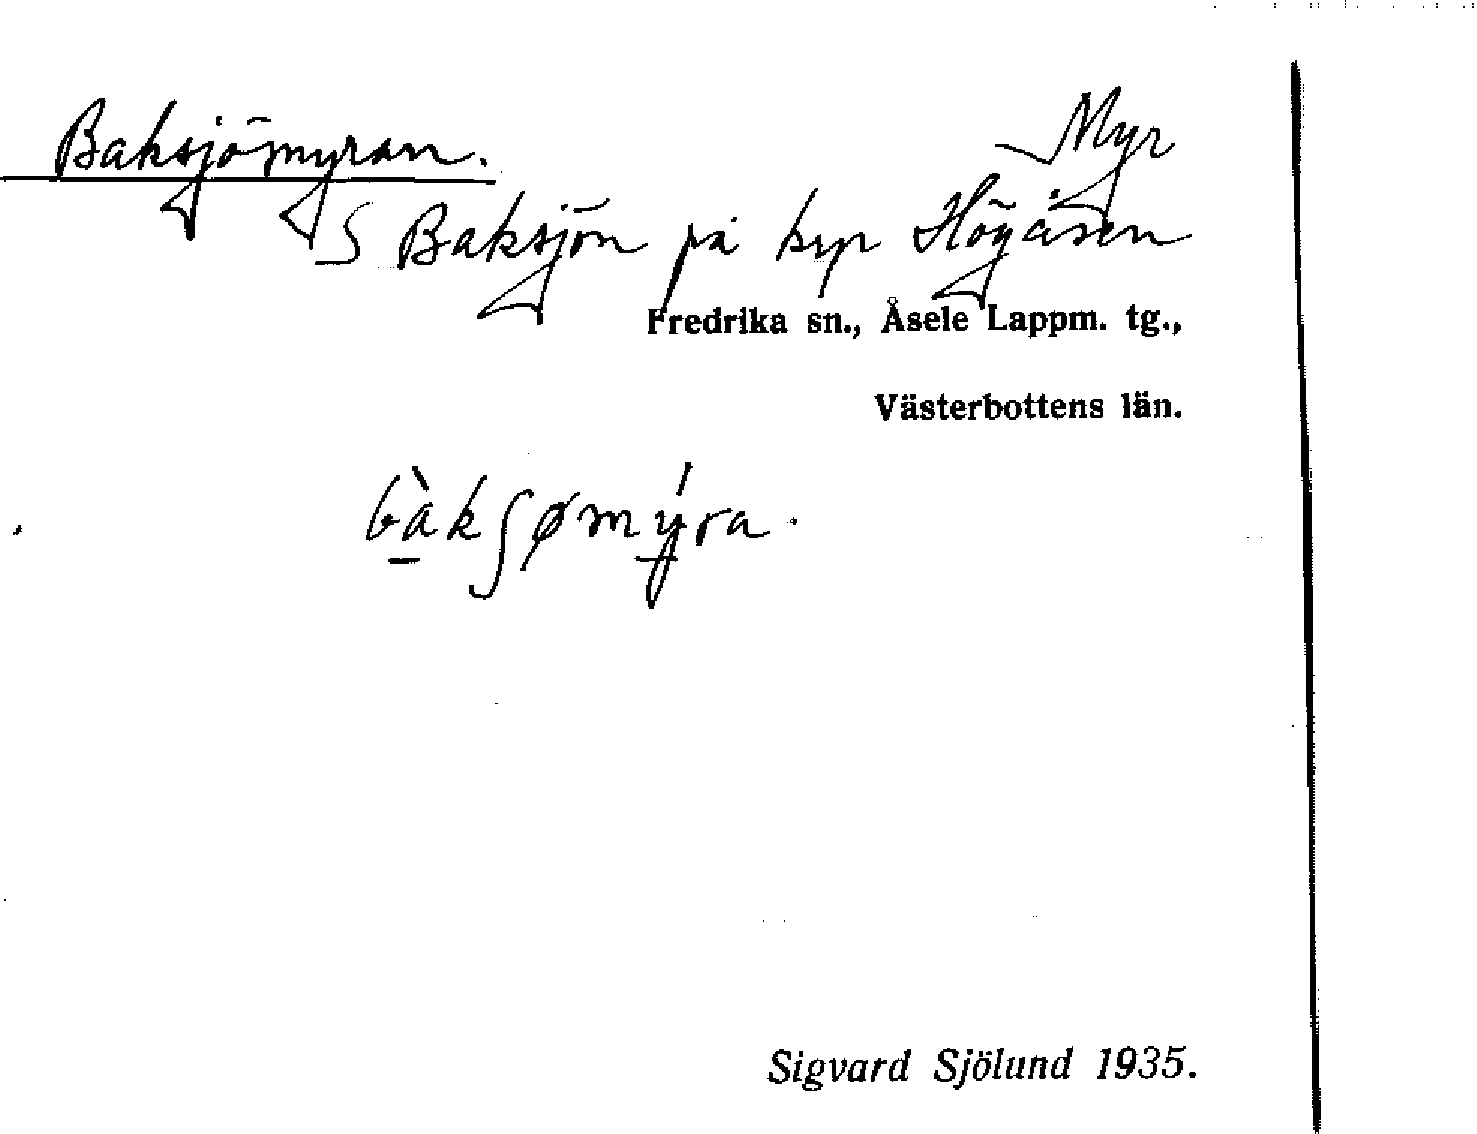 Baksjömyran.
Myr
S Baksjön på kpr Högåsen
Fredrika sn., Åsele Lappm. tg.,
Västerbottens län.
bàkʃømýra.
Sigvard Sjölund 1935.